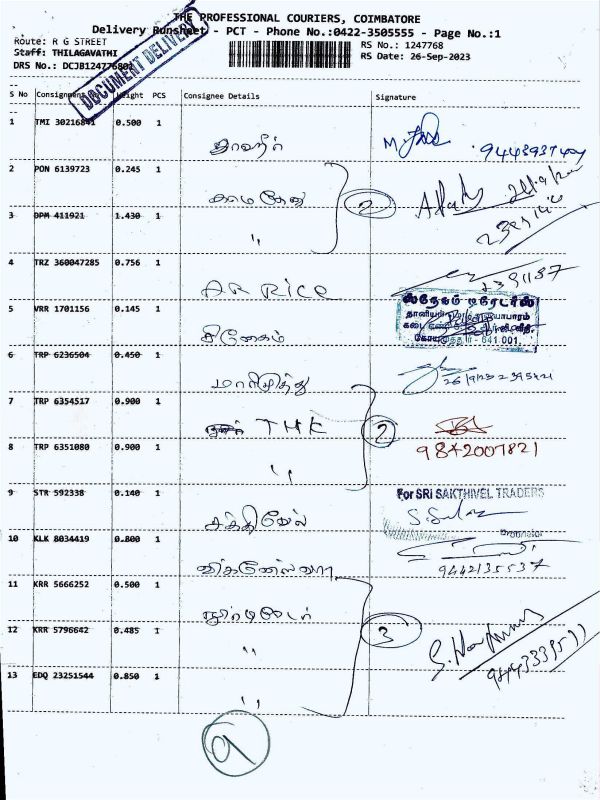 THE PROFESSIONAL COURIERS, COIMBATORE
Delivery Runsheet - PCT - Phone No.:0422-3505555 - Page No.:1
Route: R G STREET
RS No.: 1247768
Staff: THILAGAVATHI
RS Date: 26-Sep-2023
DRS No.: DCJB1247768
DOCUMENT DELIVERY
S No Consignment Weight PCS Consignee Details Signature
1 TMI 30216841 0.500 1
2 PON 6139723 0.245 1 காமதேனு 2
3 DPM 411921 1.430 1 "
4 TRZ 360047285 0.756 1 AR RICE 2391187
ஸ்நேகம் டிரேடர்ஸ்
5 VRR 1701156 0.145 1 சிநேகம்
கோயமுத்தூர் - 641 001.
6 TRP 6236504 0.450 1 மாரிமுத்து
7 TRP 6354517 0.900 1 THK 2
8 TRP 6351080 0.900 1 " 9842007821
9 STR 592338 0.140 1 சக்திவேல் For SRI SAKTHIVEL TRADERS
Proprietor
10 KLK 8034419 0.800 1 9442135537
11 KRR 5666252 0.500 1
12 KRR 5796642 0.485 1 " 3
13 EDQ 23251544 0.850 1 "
9